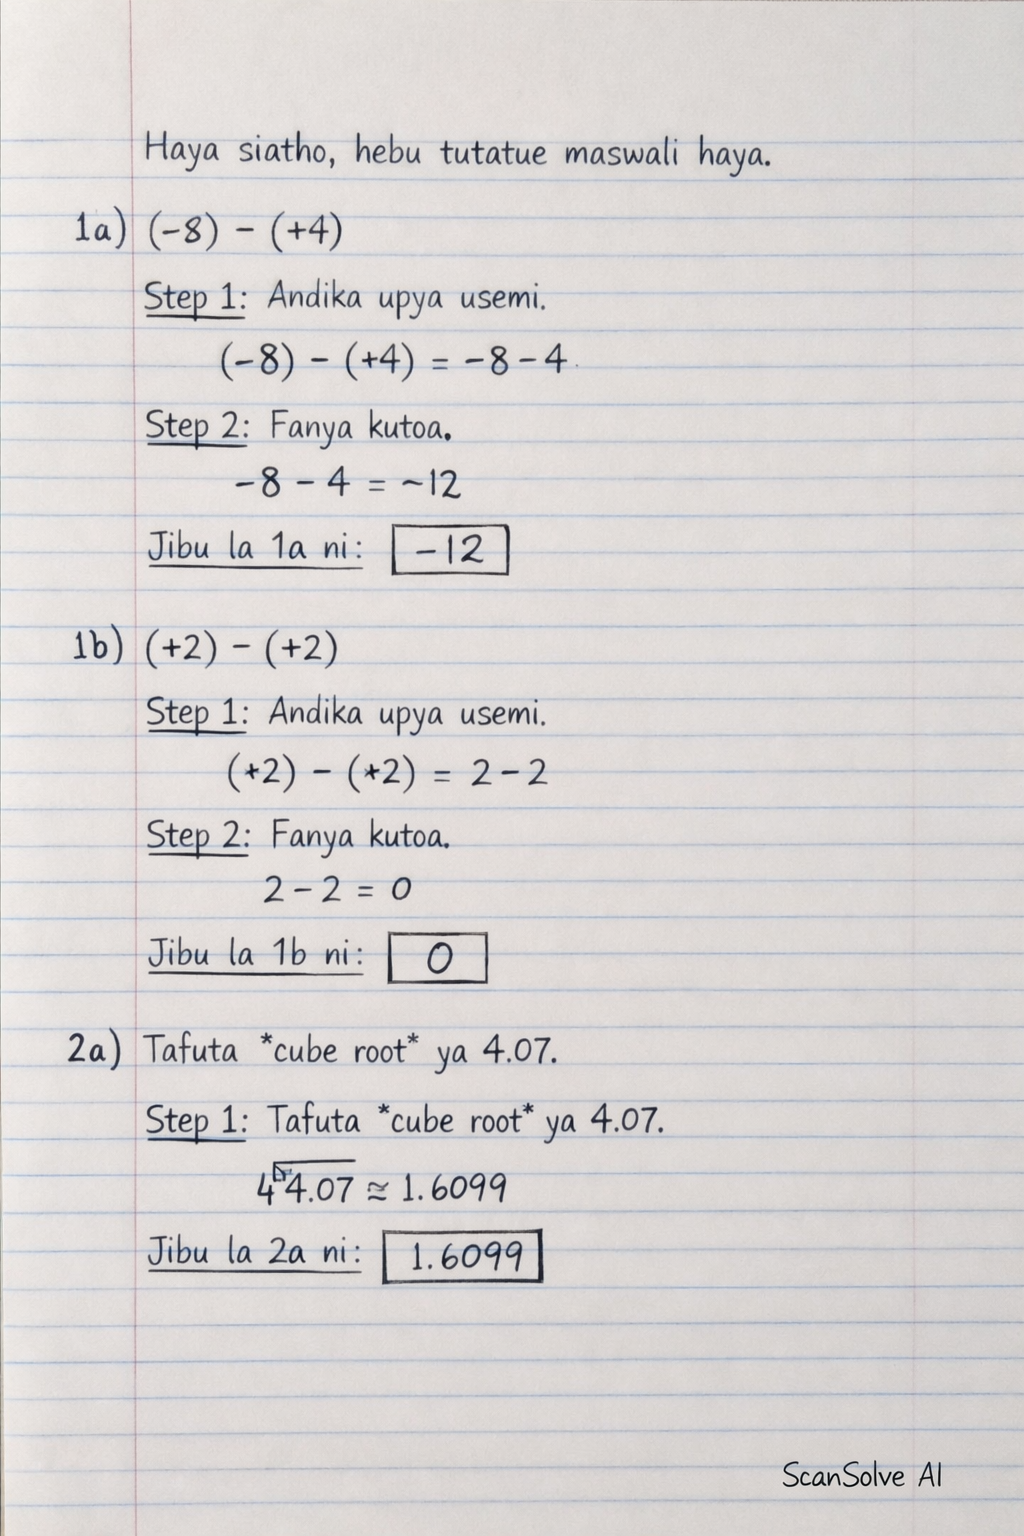 Haya siatho, hebu tutatue maswali haya.
1a) (-8) - (+4)
Step 1: Andika upya usemi.
(-8) - (+4) = -8 - 4.
Step 2: Fanya kutoa.
-8 - 4 = ~12
Jibu la 1a ni: -12
1b) (+2) - (+2)
Step 1: Andika upya usemi.
(+2) - (+2) = 2 - 2
Step 2: Fanya kutoa.
2 - 2 = 0
Jibu la 1b ni: 0
2a) Tafuta *cube root* ya 4.07.
Step 1: Tafuta *cube root* ya 4.07.
4.07 ≈ 1.6099
Jibu la 2a ni: 1.6099
ScanSolve AI